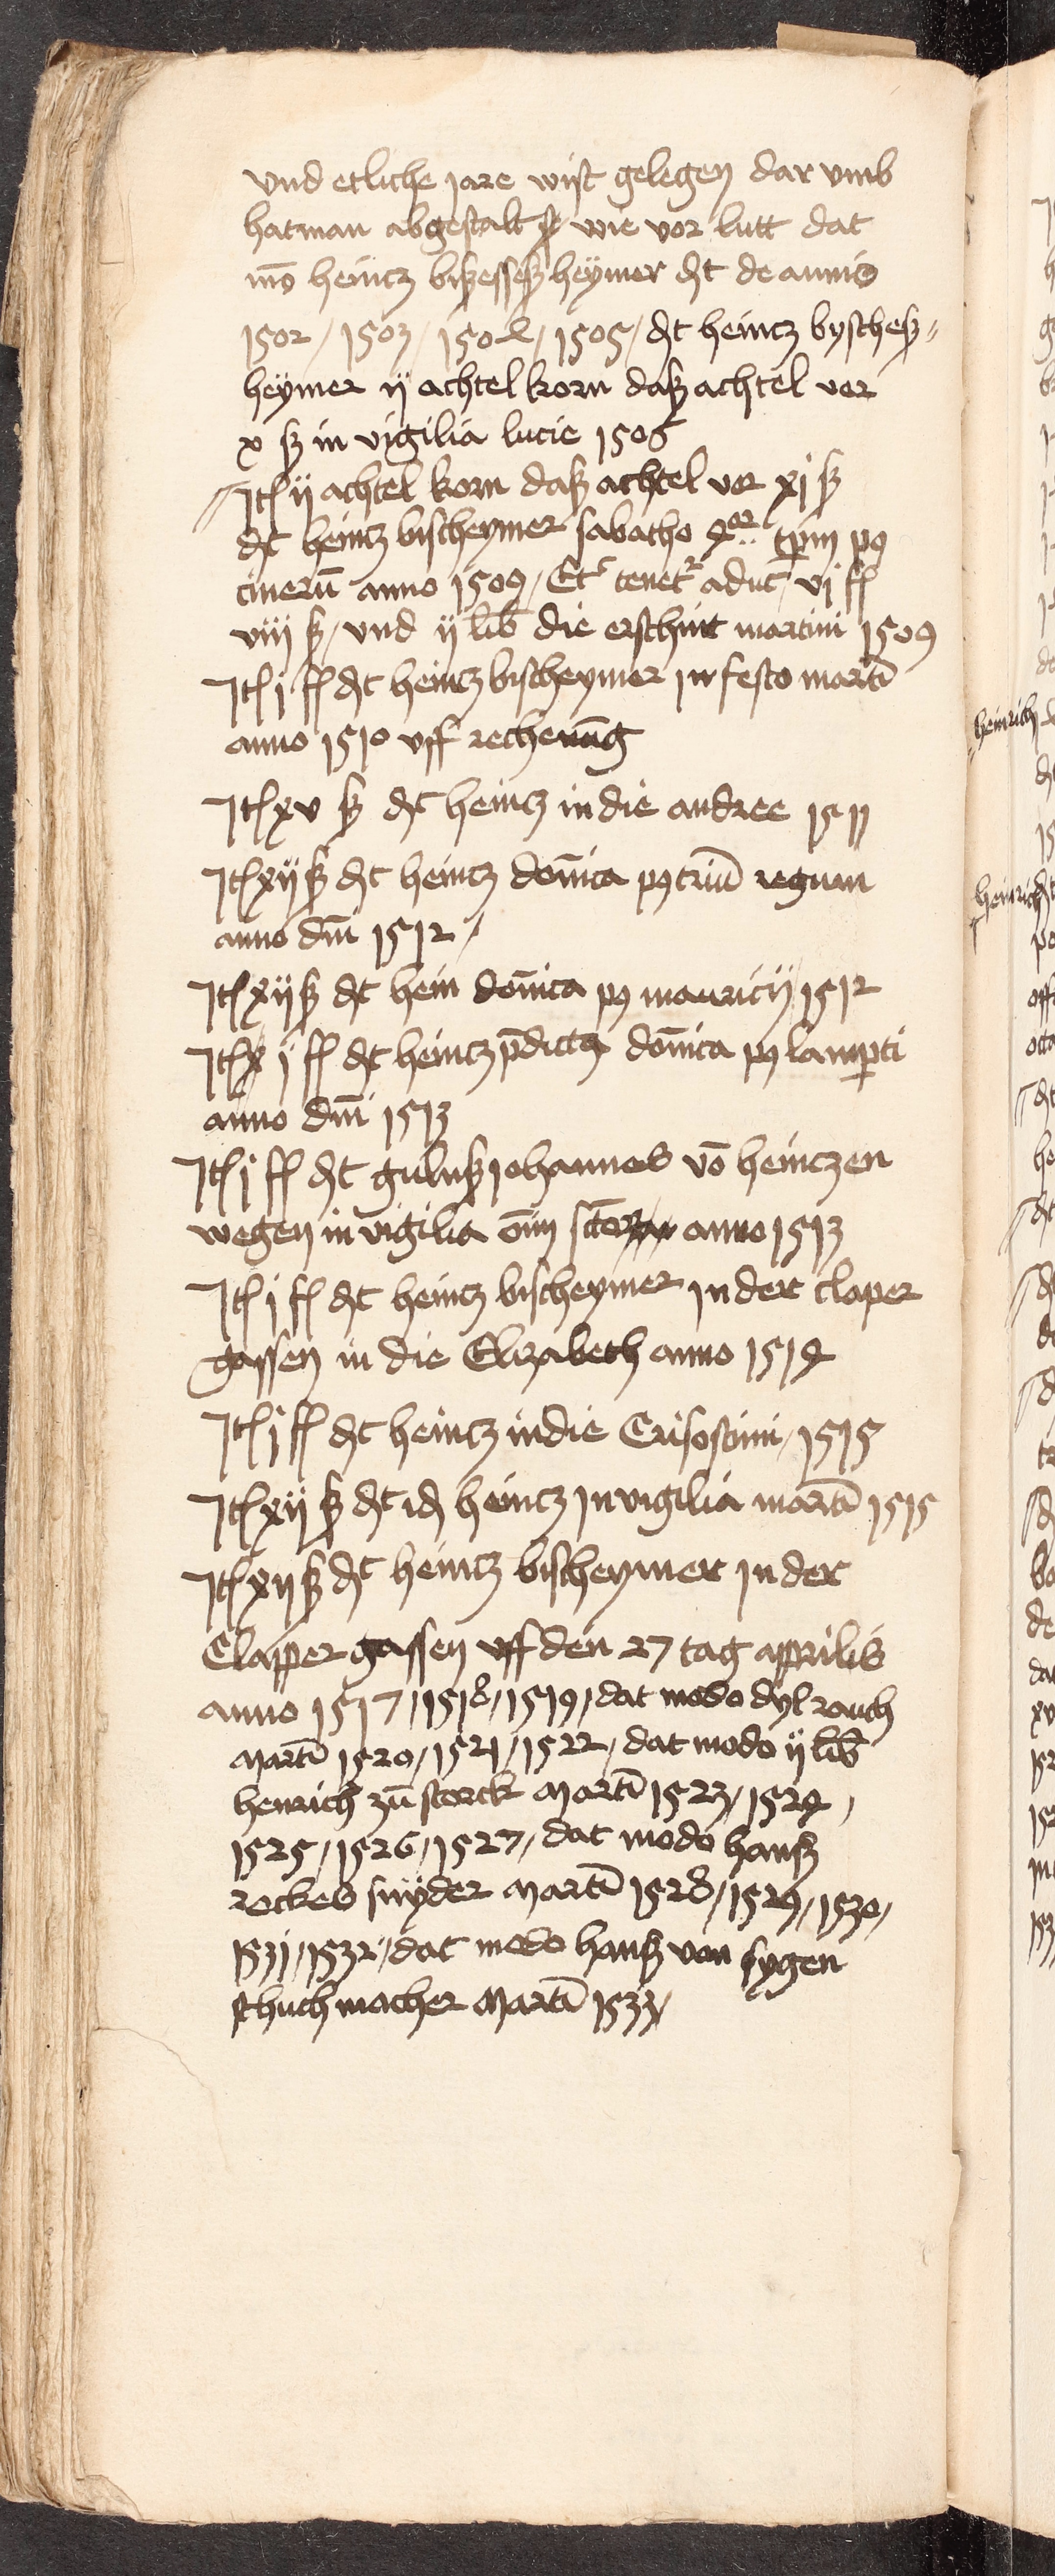 vnd etliche jare wist gelegen dar vmb
hatman abgestalt wie vor lutt dat
mo heintz bißesseßheymer dt de annis
1502 / 1503 / 1504 / 1505 / dt heintz byscheß=
heymer ij achtel korn daß achtel vor
x ß in vigilia lucie 1506
Jt ij achtel korn daß achtel vor xj ß
dt heintz bischeymer sabatho 4or tpm p9
cinerū anno 1509 / Et tenet aduc vj fl
viij ß / vnd ij lib die erschint martini 1509
Jt j fl dt heintz bischeymer in festo martī
anno 1510 vff rechenūg
Jt xv ß dt heintz in die andree 1511
Jt xij ß dt heintz domīca p9 triū regum
anno dm̄ 1512 /
Jt xij ß dt hein domīca p9 mauricij 1512
Jt j fl dt heintz p̄dictꝰ domīca p9 lamp̱ti
anno dm̄ 1513
Jt j fl dt johannes vō heintzen
wegen in vigilia om̄ sctor anno 1513
Jt j fl dt heintz bischeymer in der claper
gassen in die Elizabeth anno 1514
Jt j fl dt heintz in die Crisostimi / 1515
Jt xij ß dt id heintz in vigilia martī 1515
Jt xij ß dt heintz bischeymer in der
Clapper gassen vff den 27 tag apprilis
anno 1517 / 1518 / 1519 / dat modo dyl rauch
Martī 1520 / 1521 / 1522 / dat modo ij lib
henrich zū storck Martī 1523 / 1524 /
1525 / 1526 / 1527 / dat modo hanß
rockes snyder Martī 1528 / 1529 / 1530 /
1531 / 1532 / dat modo hanß von sygen
schuchmacher Martī 1533 /
heinrich
heinrich